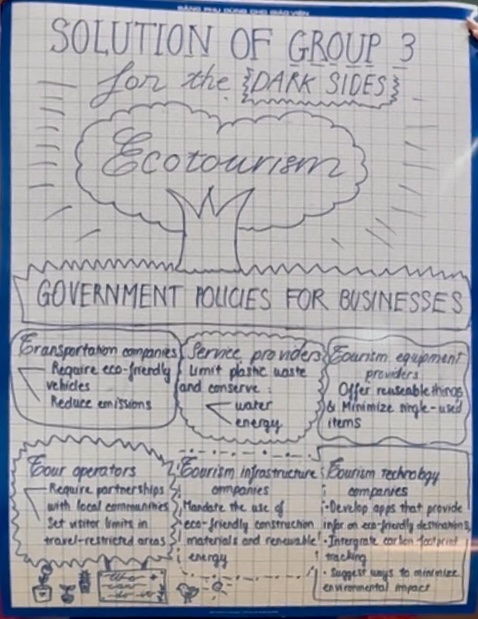 BẢNG PHỤ DÙNG CHO GIÁO VIÊN
SOLUTION OF GROUP 3
for the DARK SIDES
Ecotourism
GOVERNMENT POLICIES FOR BUSINESSES
Transportation companies
Require eco-friendly
vehicles
Reduce emissions
Service providers
Limit plastic waste
and conserve :
water
energy
Tourism equipment
providers
Offer reuseable things
& Minimize single-used
items
Tour operators
Require partnerships
with local communities
Set visitor limits in
travel-restricted areas
Tourism infrastructure
companies
Mandate the use of
eco-friendly construction
materials and renewable
energy
Tourism technology
companies
• Develop apps that provide
infor on eco-friendly destinations
• Intergrate carbon footprint
tracking
• Suggest ways to minimize
environmental impact